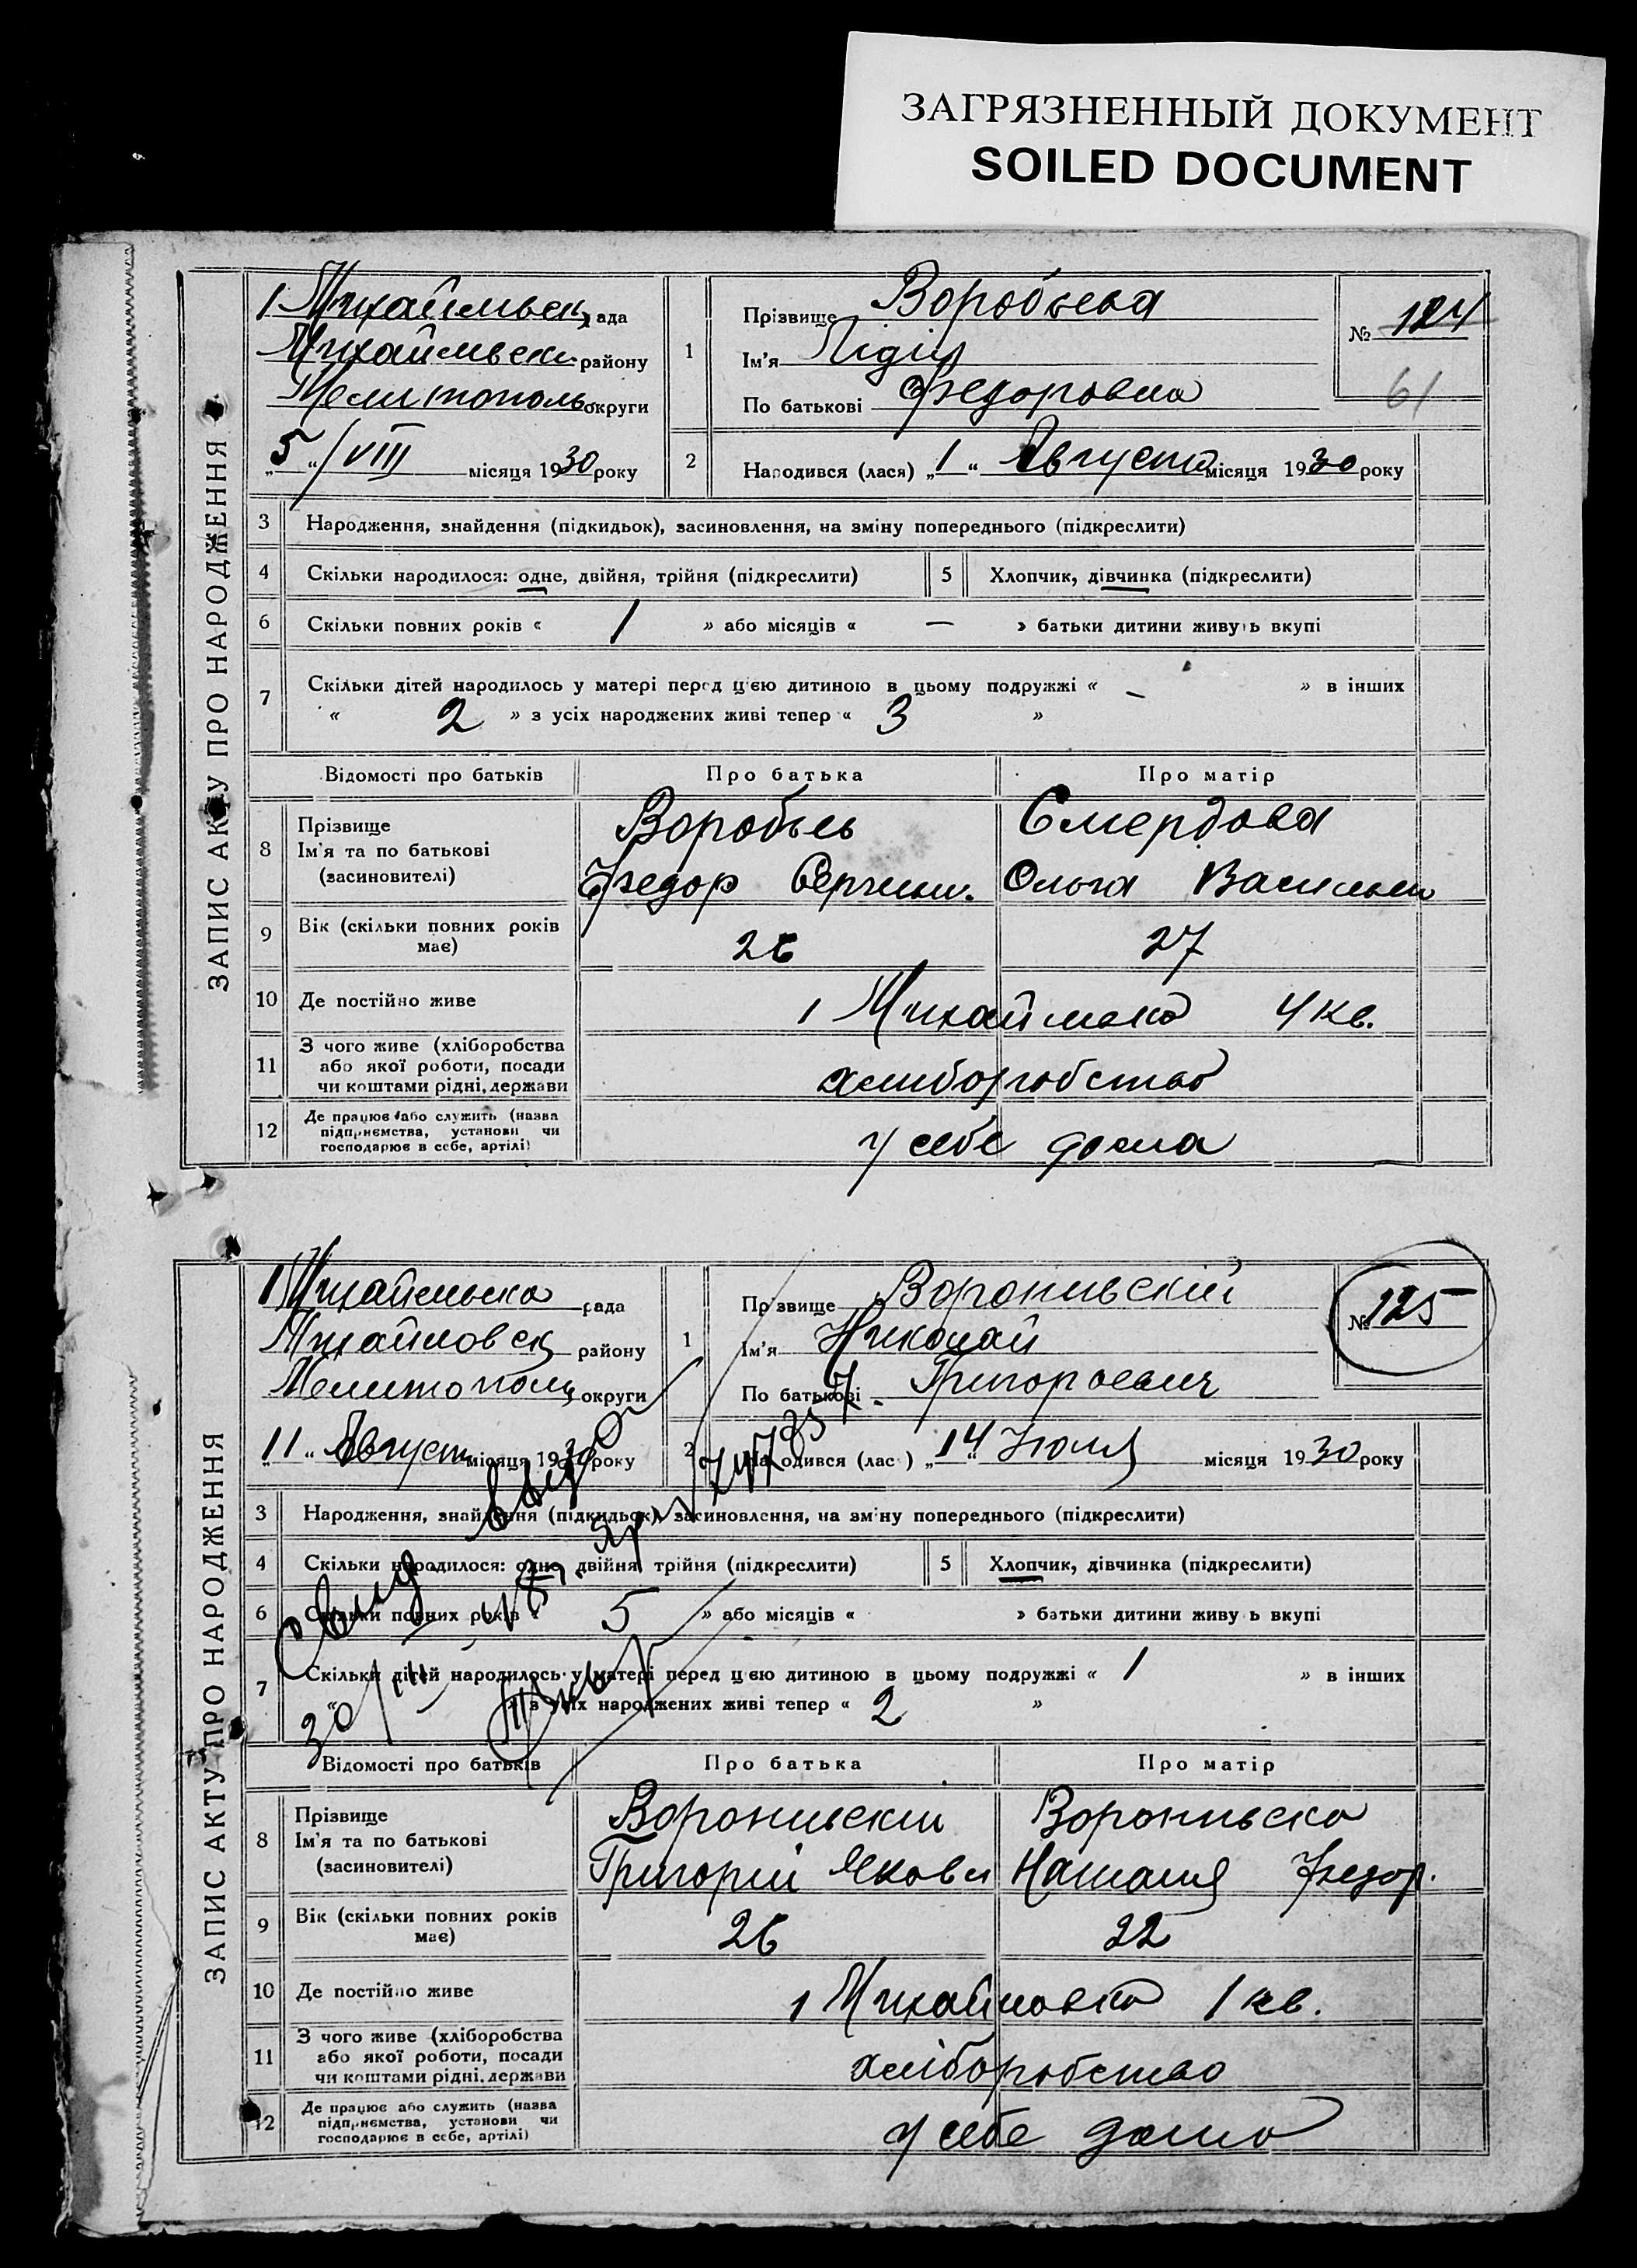 ЗАГРЯЗНЕННЫЙ ДОКУМЕНТ
SOILED DOCUMENT
ЗАПИС АКТУ ПРО НАРОДЖЕННЯ
1 Михайльвск рада
Михайльвск району
Мелитополь округи
„5“/VIII місяця 1930 року
1
Прізвище Воробьева
Ім'я Лидия
По батькові Федоровна
№ 124
61
2
Народився (лася) „1“ Августа місяця 1930 року
3 Народження, знайдення (підкидьок), засиновлення, на зміну попереднього (підкреслити)
4 Скільки народилося: одне, двійня, трійня (підкреслити) 5 Хлопчик, дівчинка (підкреслити)
6 Скільки повних років « 1 » або місяців « — » батьки дитини живуть вкупі
7 Скільки дітей народилось у матері перед цією дитиною в цьому подружжі « — » в інших
« 2 » з усіх народжених живі тепер « 3 »
Відомості про батьків Про батька Про матір
8 Прізвище Ім'я та по батькові (засновителі)
Воробьев Смердова
Федор Ольга Васильев
9 Вік (скільки повних років має) 26 27
10 Де постійно живе 1 Михайловка 4 кв.
11 З чого живе (хліборобства або якої роботи, посади чи коштами рідні, держави хлиборобство
12 Де працює або служить (назва підприємства, установи чи господарює в себе, артілі) у себе дома
ЗАПИС АКТУ ПРО НАРОДЖЕННЯ
1 Михайльвска рада
Михайловск району
Мелитополь округи
„11“ Август місяця 1930 року
1
Прізвище Воронивскій
Ім'я Николай
По батькові Григорьевич
№ 125
2
Народився (лася) „14“ Июля місяця 1930 року
3 Народження, знайдення (підкидьок), засиновлення, на зміну попереднього (підкреслити)
4 Скільки народилося: одне, двійня, трійня (підкреслити) 5 Хлопчик, дівчинка (підкреслити)
6 Скільки повних років « 5 » або місяців « » батьки дитини живуть вкупі
7 Скільки дітей народилось у матері перед цією дитиною в цьому подружжі « 1 » в інших
« » з усіх народжених живі тепер « 2 »
Відомості про батьків Про батька Про матір
8 Прізвище Ім'я та по батькові (засиновителі)
Воронивскій Воронивска
Григорій Яковл Наталия Федор.
9 Вік (скільки повних років має) 26 22
10 Де постійно живе 1 Михайловка 1 кв.
11 З чого живе (хліборобства або якої роботи, посади чи коштами рідні, держави хліборобство
12 Де працює або служить (назва підприємства, установи чи господарює в себе, артілі) у себе дома